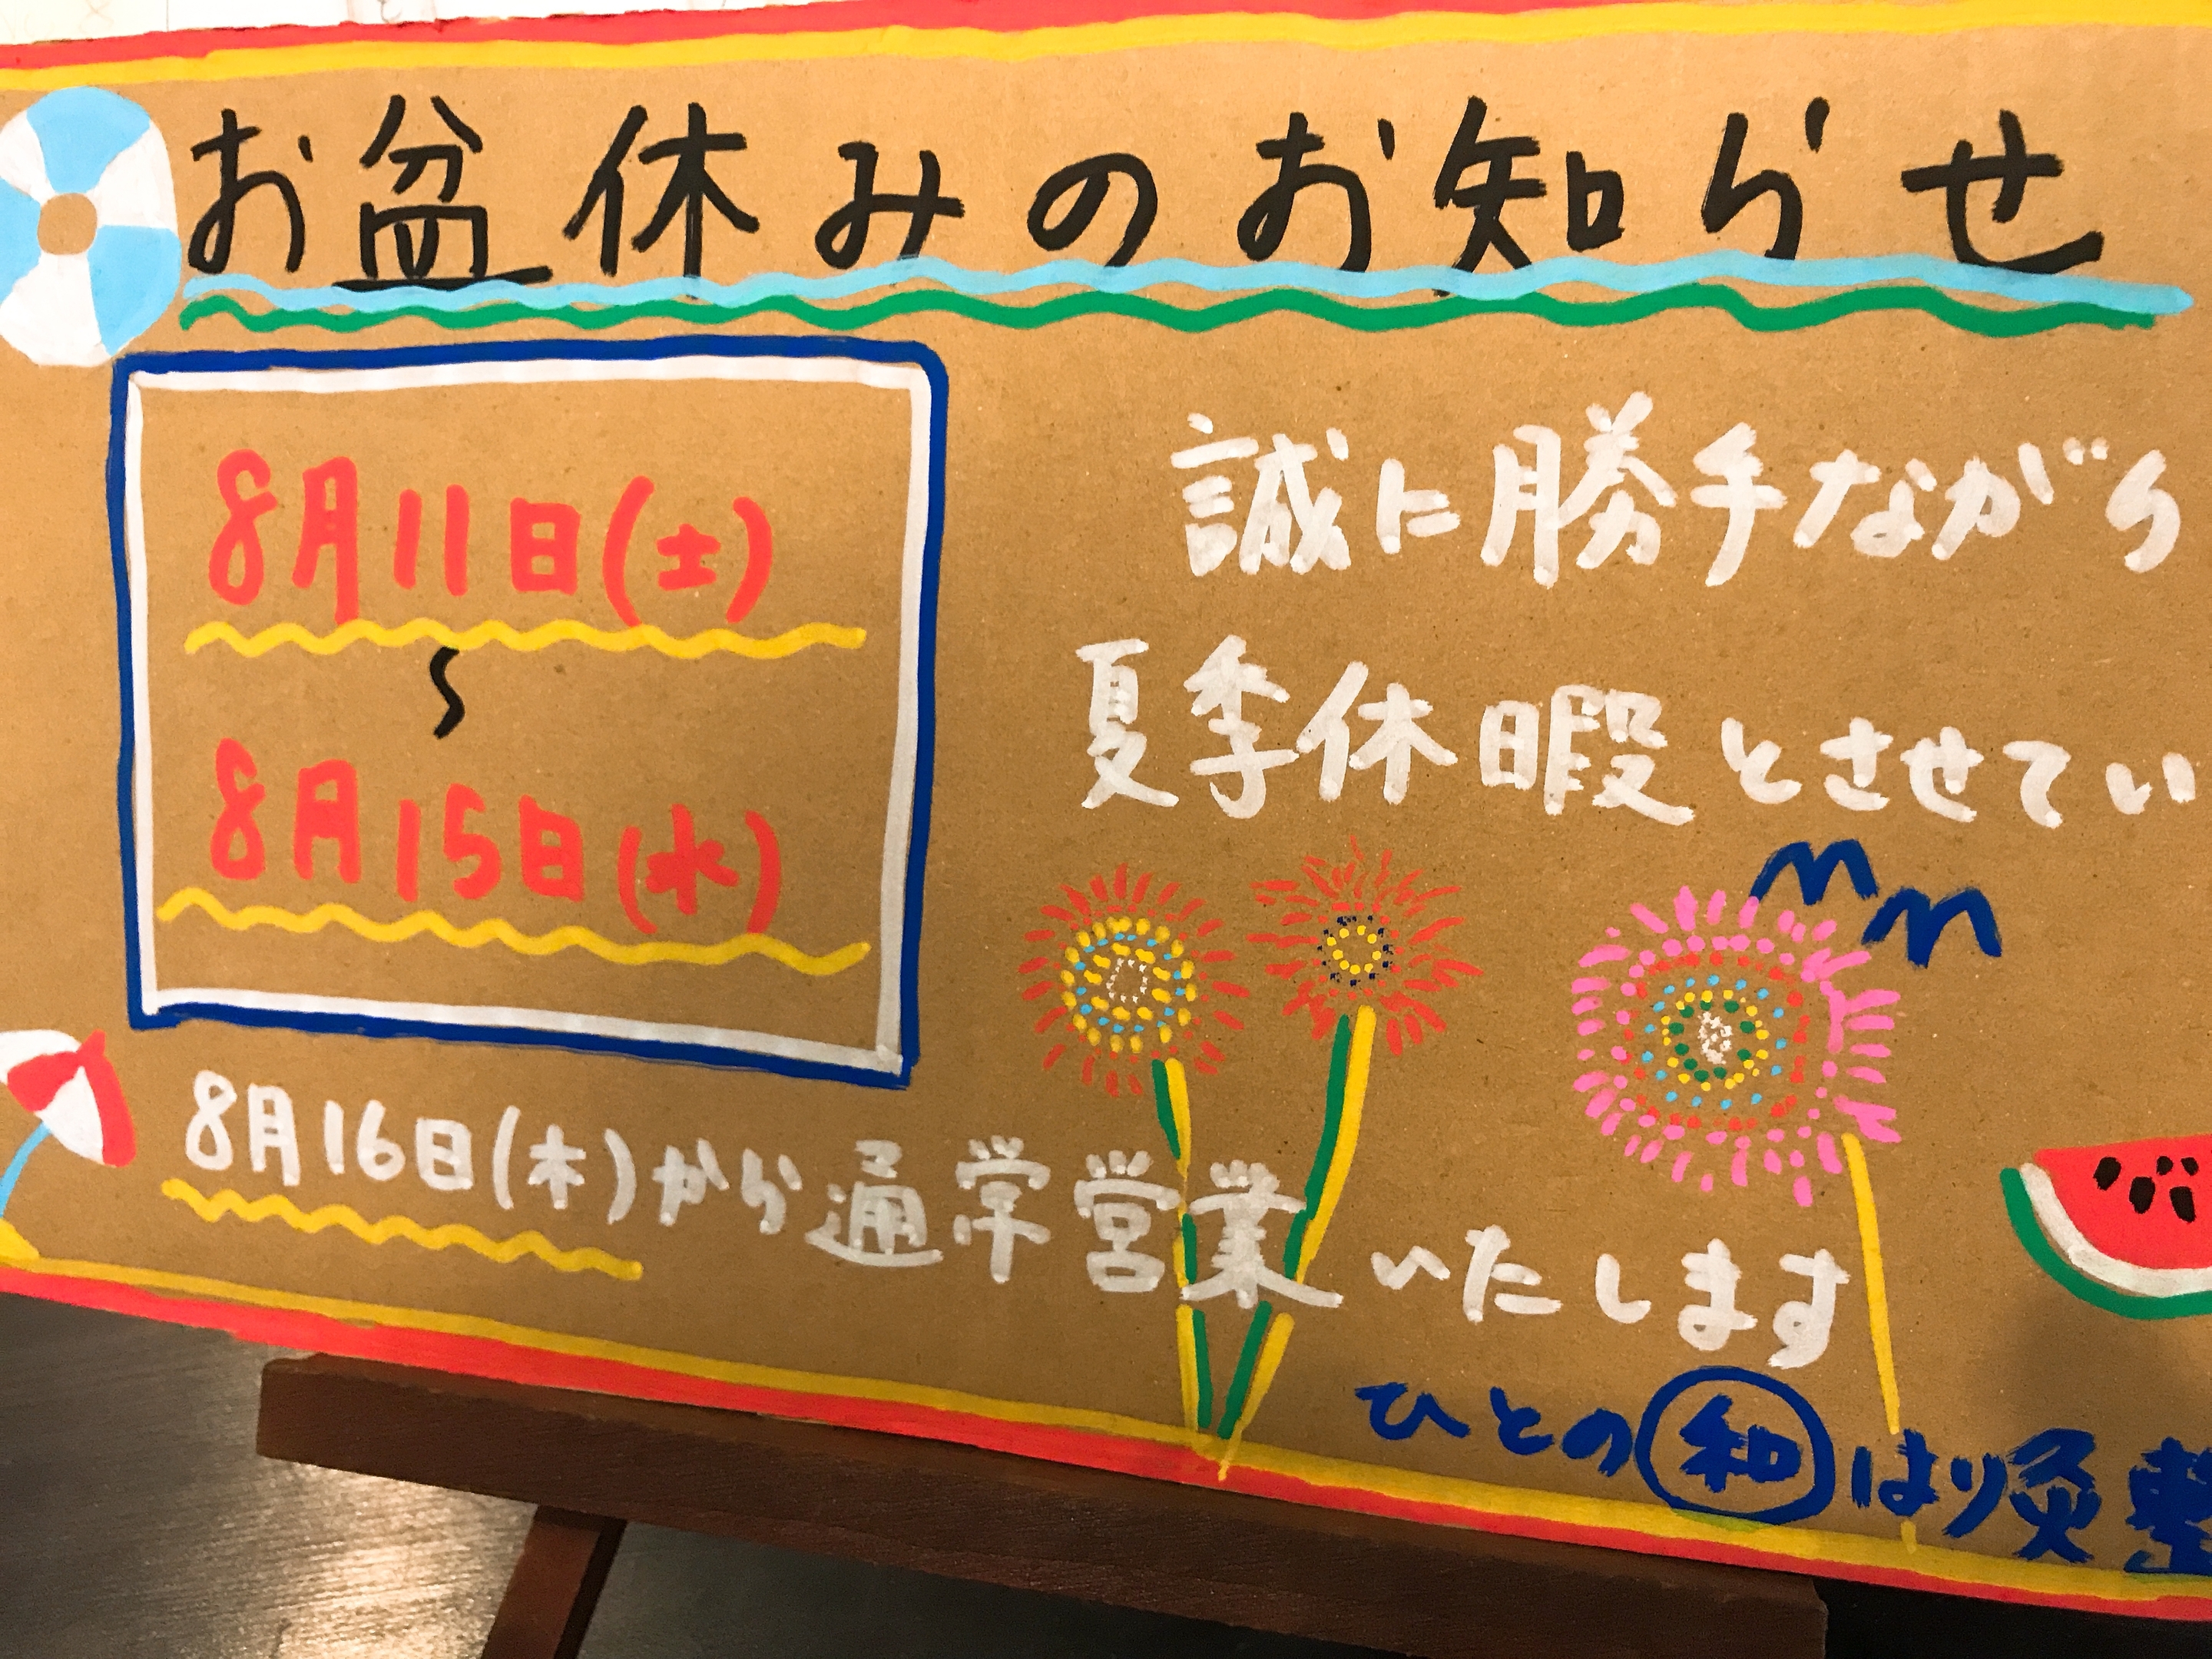 お盆休みのお知らせ
8月11日(土)
〜
8月15日(水)
誠に勝手ながら
夏季休暇とさせてい
8月16日(木)から通常営業いたします
ひとの和はり灸整